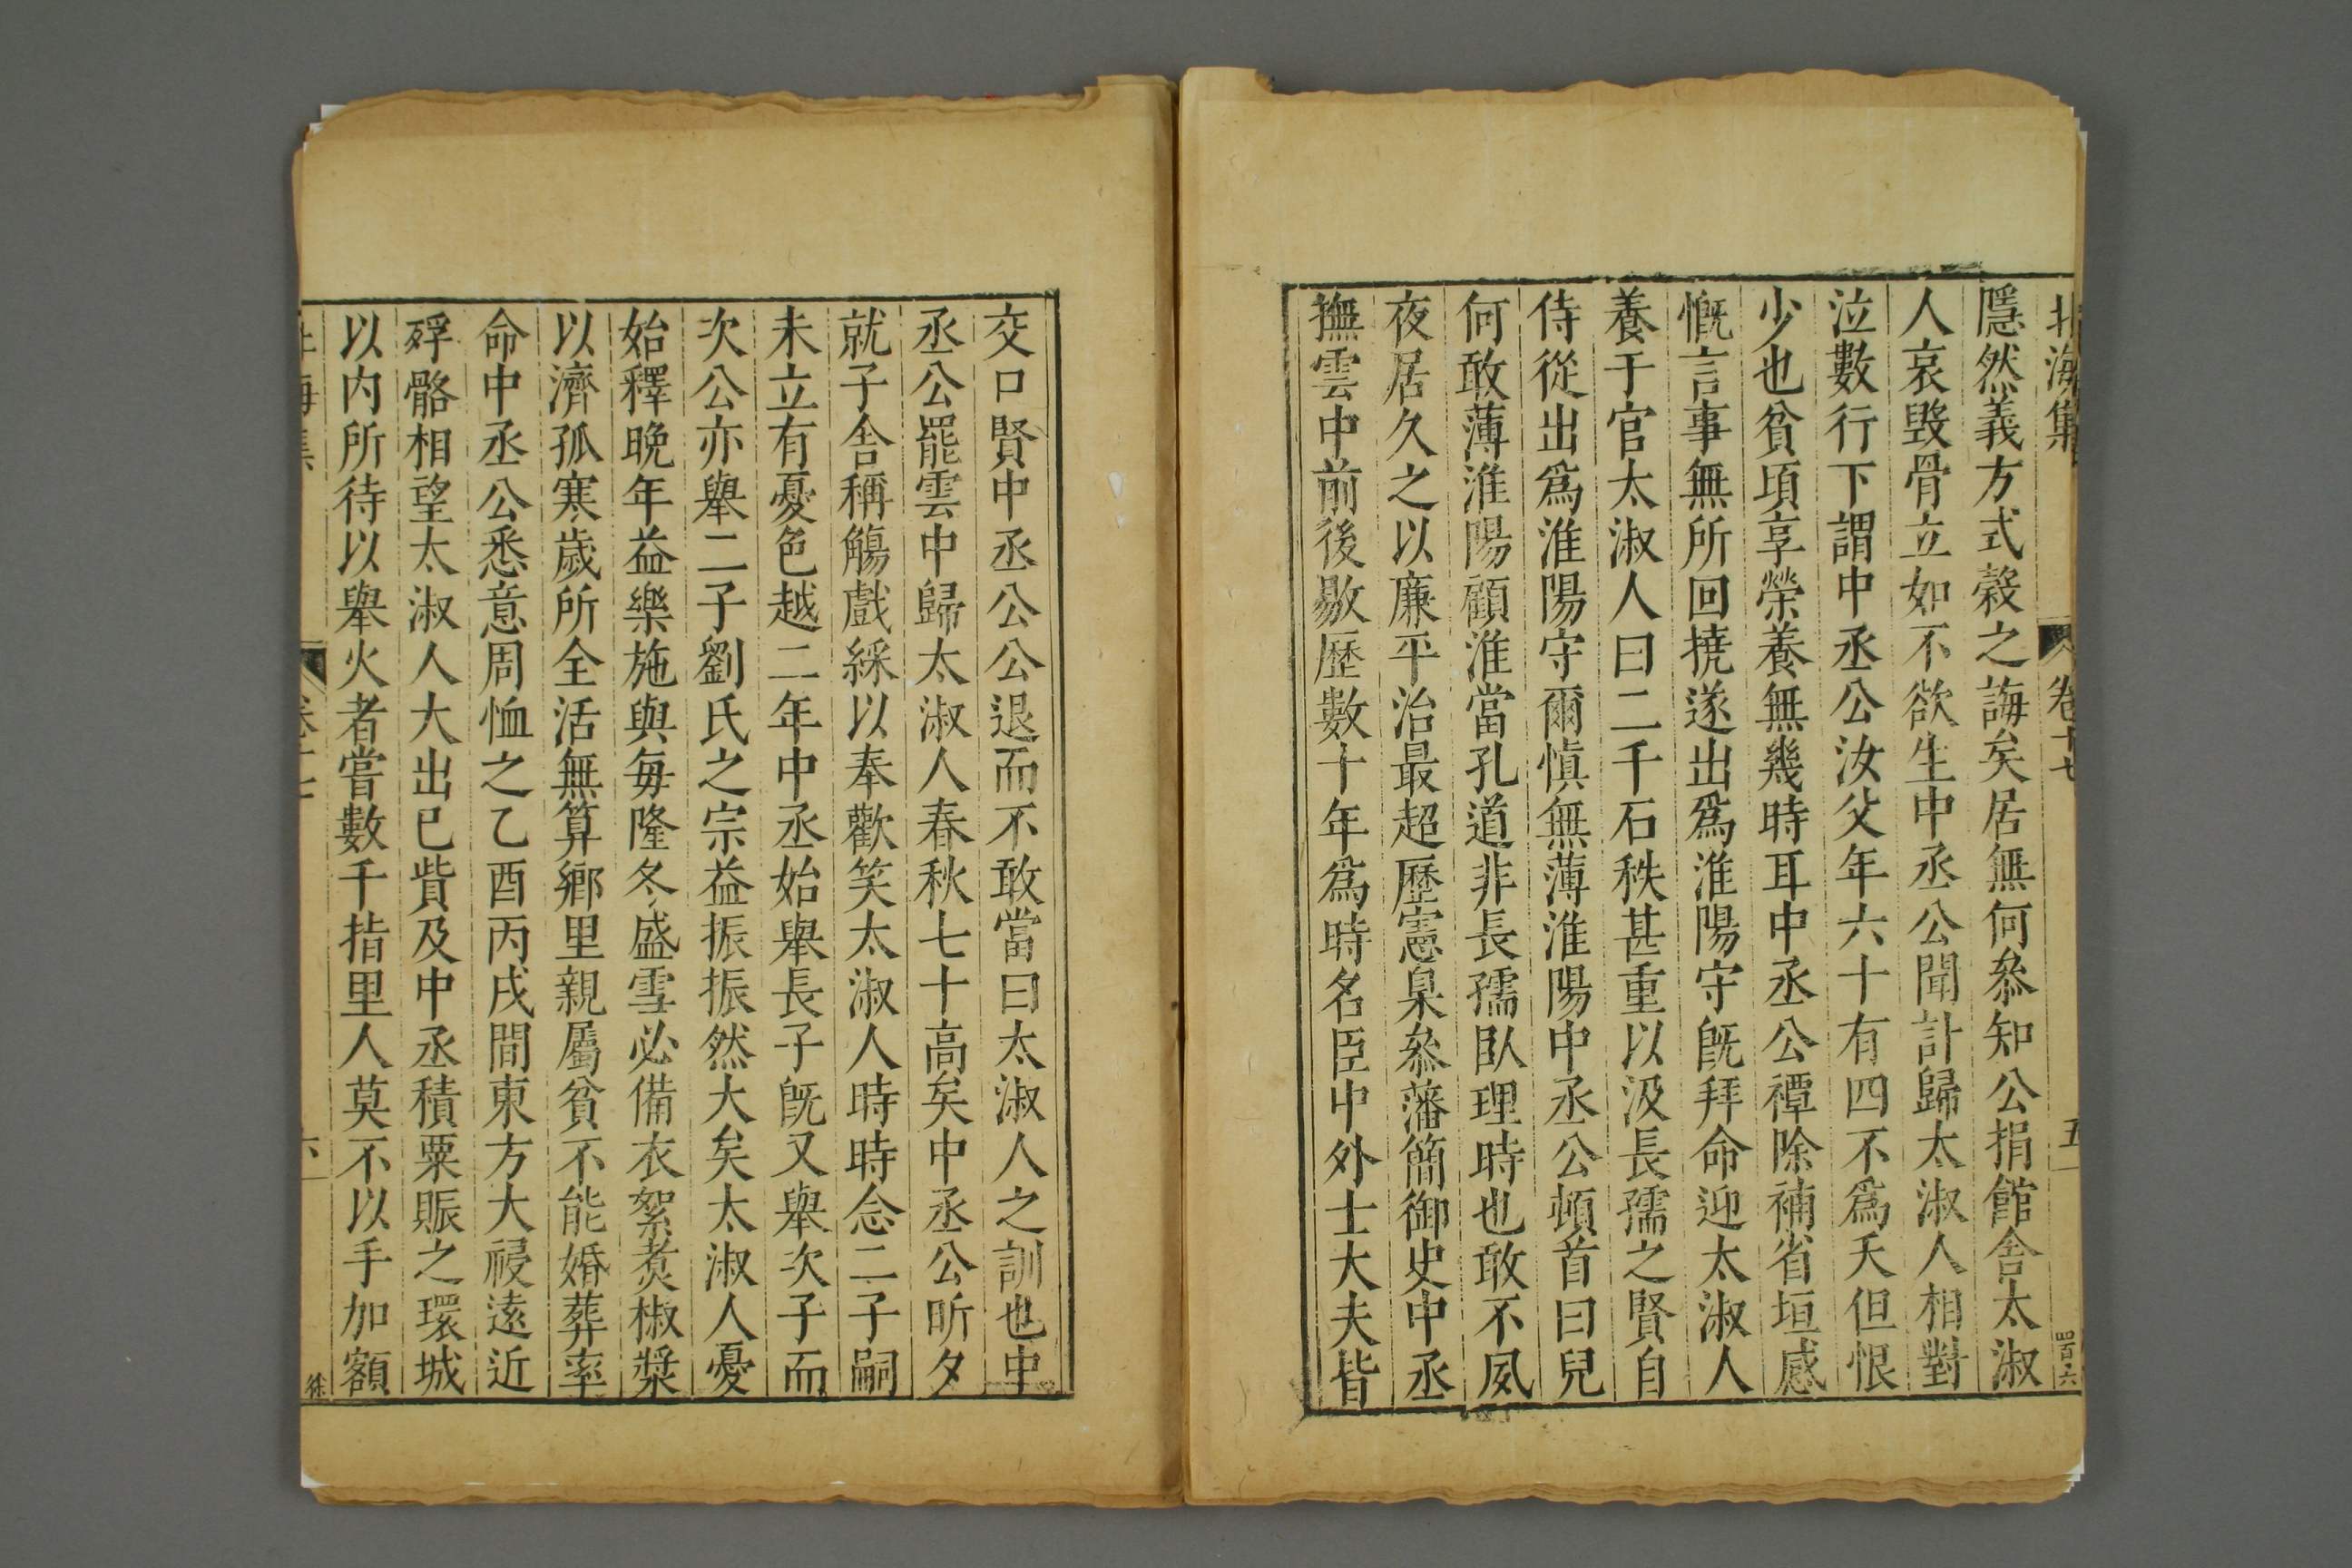 北海集 卷十七 五 四百六
隱然義方式穀之誨矣居無何叅知公捐館舍太淑
人哀毀骨立如不欲生中丞公聞訃歸太淑人相對
泣數行下謂中丞公汝父年六十有四不爲夭但恨
少也貧頃享榮養無幾時耳中丞公禫除補省垣感
慨言事無所回撓遂出爲淮陽守旣拜命迎太淑人
養于官太淑人曰二千石秩甚重以汲長孺之賢自
侍從出爲淮陽守爾愼無薄淮陽中丞公頓首曰兒
何敢薄淮陽顧淮當孔道非長孺臥理時也敢不夙
夜居久之以廉平治最超歷憲臬叅藩簡御史中丞
撫雲中前後敭歷數十年爲時名臣中外士大夫皆
交口賢中丞公公退而不敢當曰太淑人之訓也中
丞公罷雲中歸太淑人春秋七十高矣中丞公昕夕
就子舍稱觴戲綵以奉歡笑太淑人時時念二子嗣
未立有憂色越二年中丞始舉長子旣又舉次子而
次公亦舉二子劉氏之宗益振振然大矣太淑人憂
始釋晚年益樂施與每隆冬盛雪必備衣絮煑椒漿
以濟孤寒歲所全活無算鄉里親屬貧不能婚葬率
命中丞公悉意周恤之乙酉丙戌間東方大祲遠近
殍骼相望太淑人大出己貲及中丞積粟賑之環城
以內所待以舉火者嘗數千指里人莫不以手加額
海集 卷十七 六